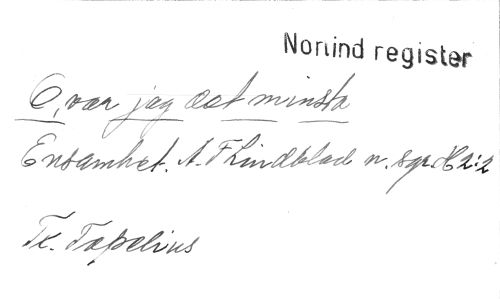 Norlind register
O, var jag det minsta
Ensamhet. A. F Lindblad n. sgr. H 2:2
Tx. Topelius